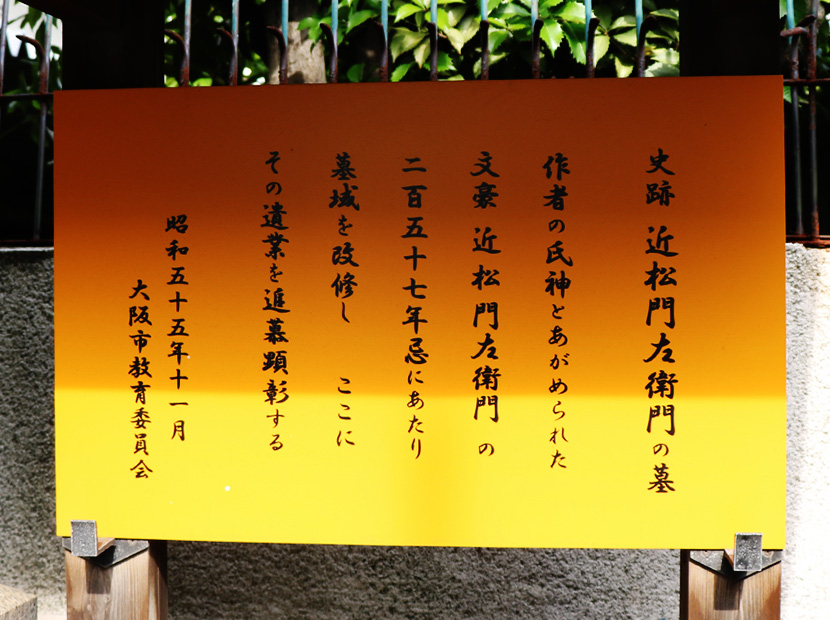 史跡 近松門左衛門の墓
作者の氏神とあがめられた
文豪 近松門左衛門 の
二百五十七年忌にあたり
墓域を改修し ここに
その遺業を追慕顕彰する
昭和五十五年十一月
大阪市教育委員会